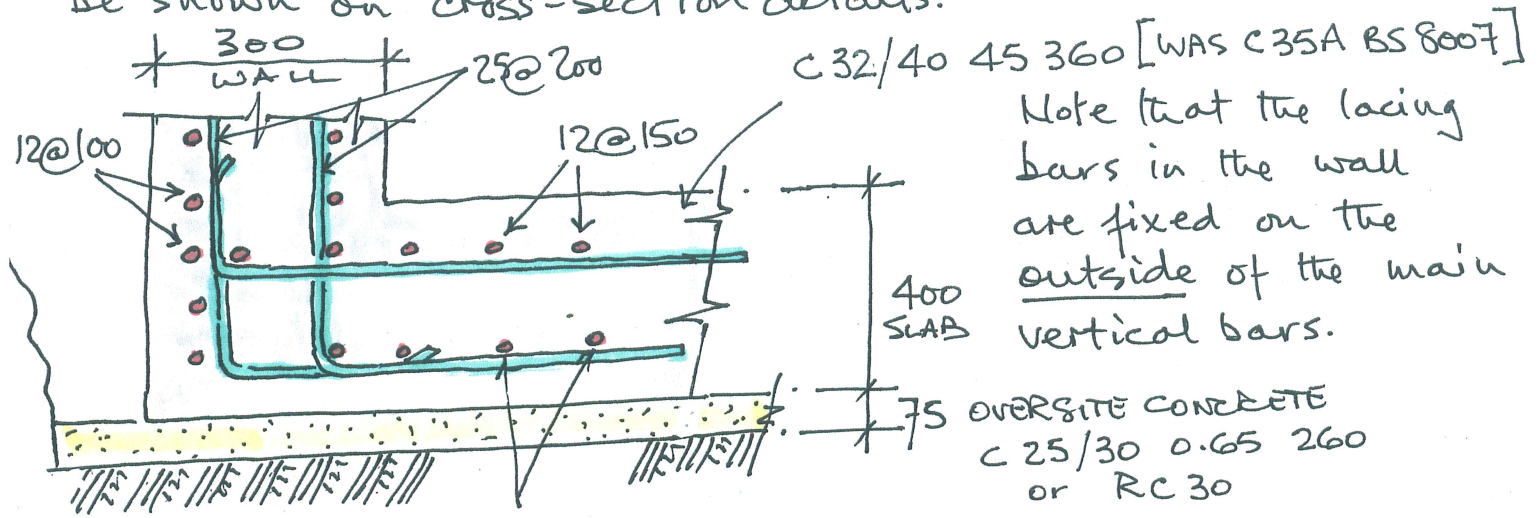 be shown on cross-section details.
300
WALL
25@200
C32/40 45 360 [WAS C35A BS 8007]
12@100
12@150
Note that the lacing
bars in the wall
are fixed on the
outside of the main
vertical bars.
400
SLAB
75 OVERSITE CONCRETE
C 25/30 0.65 260
or RC 30